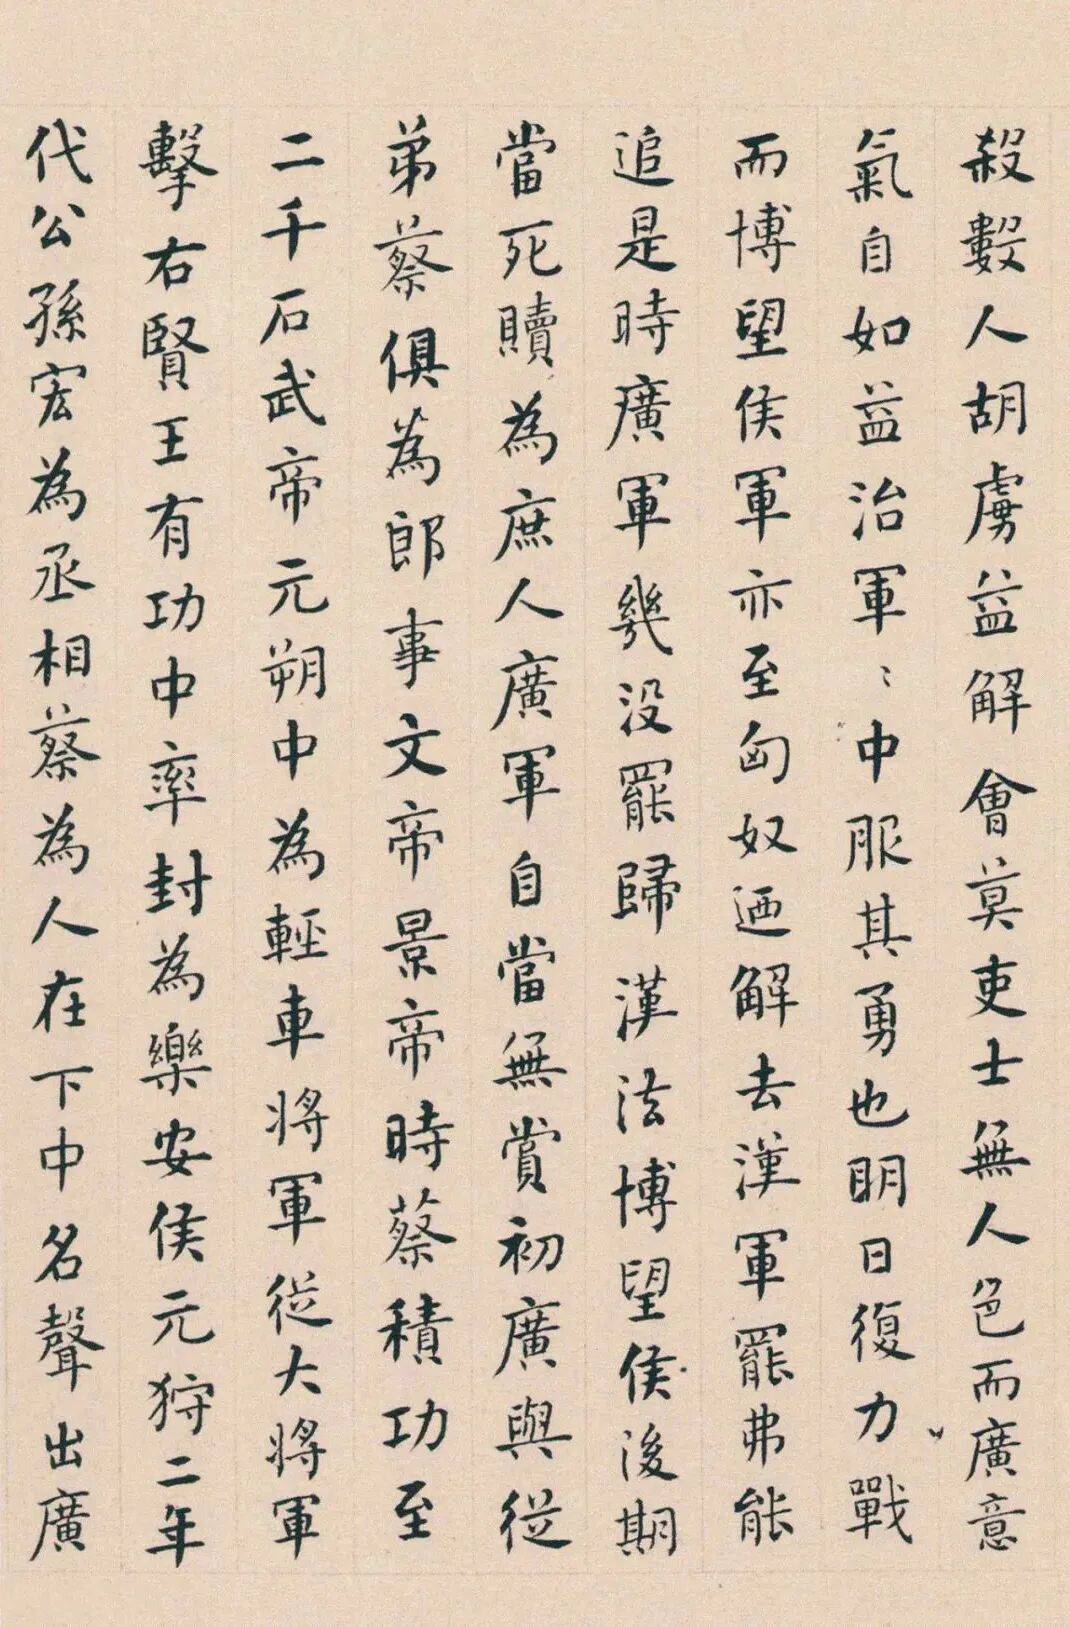 殺數人胡虜益解會莫吏士無人色而廣意
氣自如益治軍〻中服其勇也明日復力戰
而博望侯軍亦至匈奴迺解去漢軍罷弗能
追是時廣軍幾没罷歸漢法博望侯後期
當死贖為庶人廣軍自當無賞初廣與從
弟蔡俱為郎事文帝景帝時蔡積功至
二千石武帝元朔中為輕車將軍從大將軍
擊右賢王有功中率封為樂安侯元狩二年
代公孫宏為丞相蔡為人在下中名聲出廣